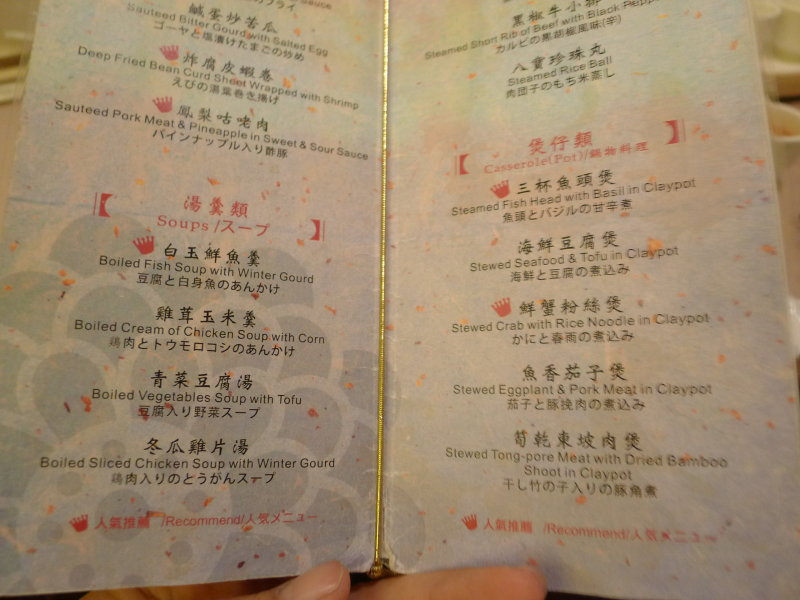 Sauce
フライ
鹹蛋炒苦瓜
Sauteed Bitter Gourd with Salted Egg
ゴーヤと塩漬けたまごの炒め
炸腐皮蝦卷
Deep Fried Bean Curd Sheet Wrapped with Shrimp
えびの湯葉巻き揚げ
鳳梨咕咾肉
Sauteed Pork Meat & Pineapple in Sweet & Sour Sauce
パインナップル入り酢豚
【 湯羹類 】
Soups /スープ
白玉鮮魚羹
Boiled Fish Soup with Winter Gourd
豆腐と白身魚のあんかけ
雞茸玉米羹
Boiled Cream of Chicken Soup with Corn
鶏肉とトウモロコシのあんかけ
青菜豆腐湯
Boiled Vegetables Soup with Tofu
豆腐入り野菜スープ
冬瓜雞片湯
Boiled Sliced Chicken Soup with Winter Gourd
鶏肉入りのとうがんスープ
人氣推薦 /Recommend/人気メニュー
黑椒牛小排
Steamed Short Rib of Beef with Black Pepp
カルビの黒胡椒風味(辛)
八寶珍珠丸
Steamed Rice Ball
肉団子のもち米蒸し
【 煲仔類 】
Casserole(Pot)/鍋物料理
三杯魚頭煲
Steamed Fish Head with Basil in Claypot
魚頭とバジルの甘辛煮
海鮮豆腐煲
Stewed Seafood & Tofu in Claypot
海鮮と豆腐の煮込み
鮮蟹粉絲煲
Stewed Crab with Rice Noodle in Claypot
かにと春雨の煮込み
魚香茄子煲
Stewed Eggplant & Pork Meat in Claypot
茄子と豚挽肉の煮込み
筍乾東坡肉煲
Stewed Tong-pore Meat with Dried Bamboo
Shoot in Claypot
干し竹の子入りの豚角煮
人氣推薦 /Recommend/人気メニュー